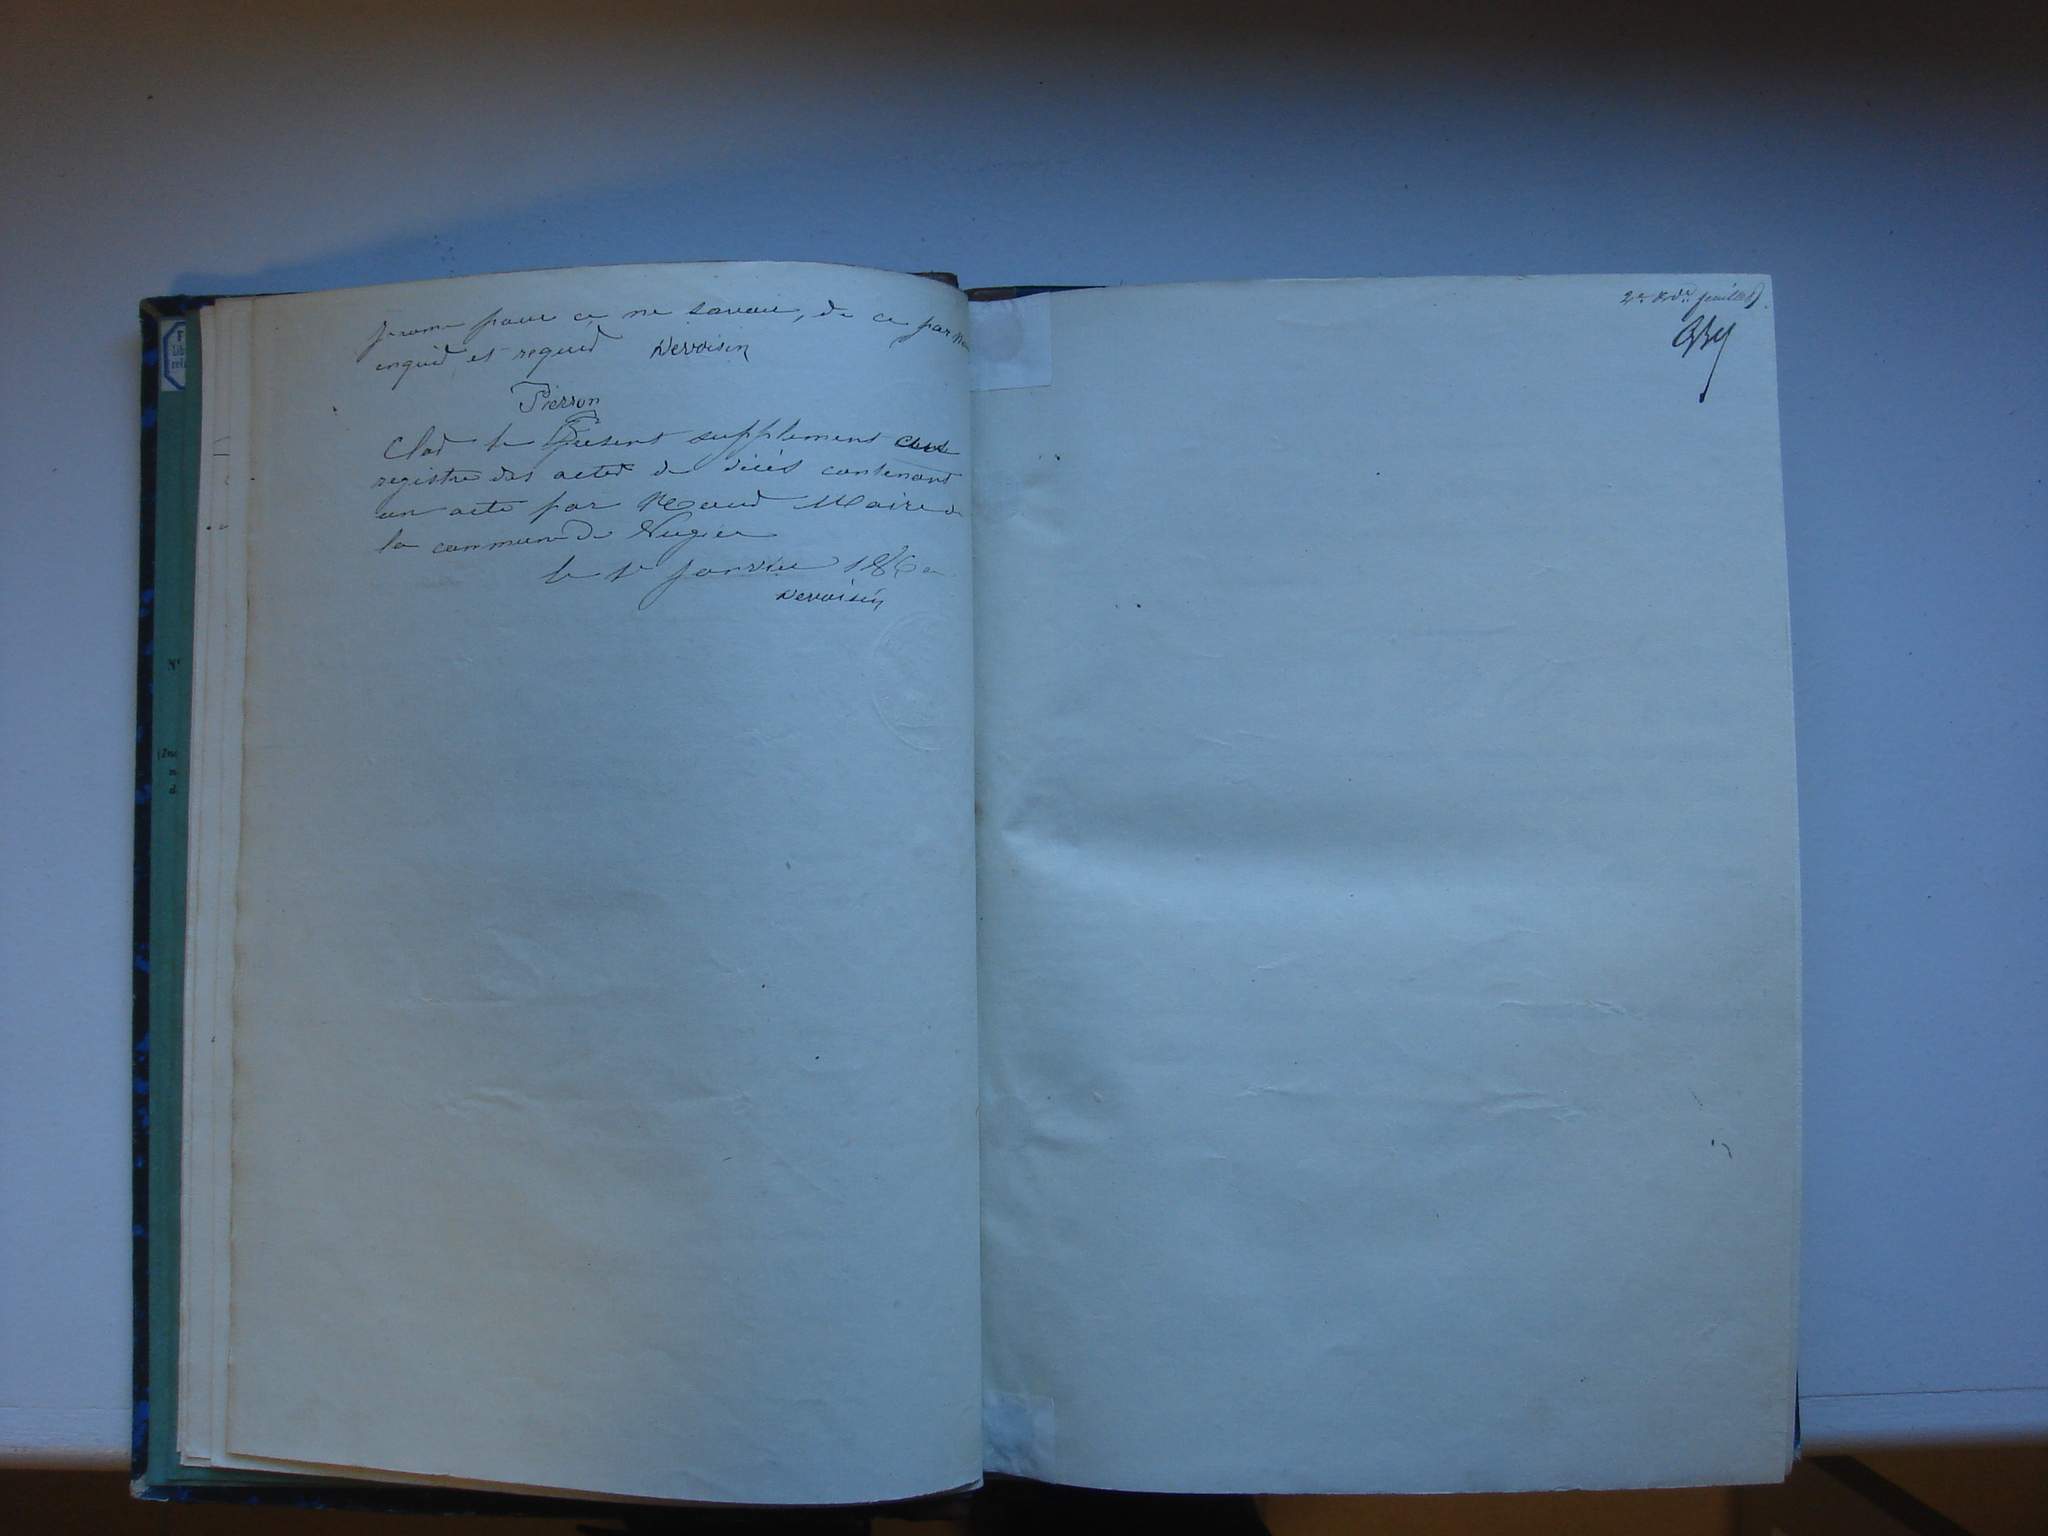 Jerome pour ce ne savoir, de ce par nous
enquis et requis Devoisin
Pierron
Clos le present supplement au
registre des actes de décès contenant
un acte par Nous Maire de
la commune de
le 1er janvier 186
Devoisin
2e & der feuillet.